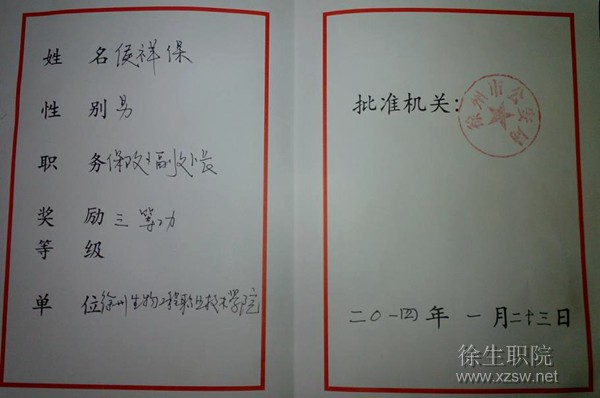 姓 名 侯祥保
性 别 男
职 务 保卫处副处长
奖 励 三等功
等 级
单 位 徐州生物工程职业技术学院
批准机关:
徐州市公安局
二〇一四年 一月二十三日
徐生职院
www.xzsw.net